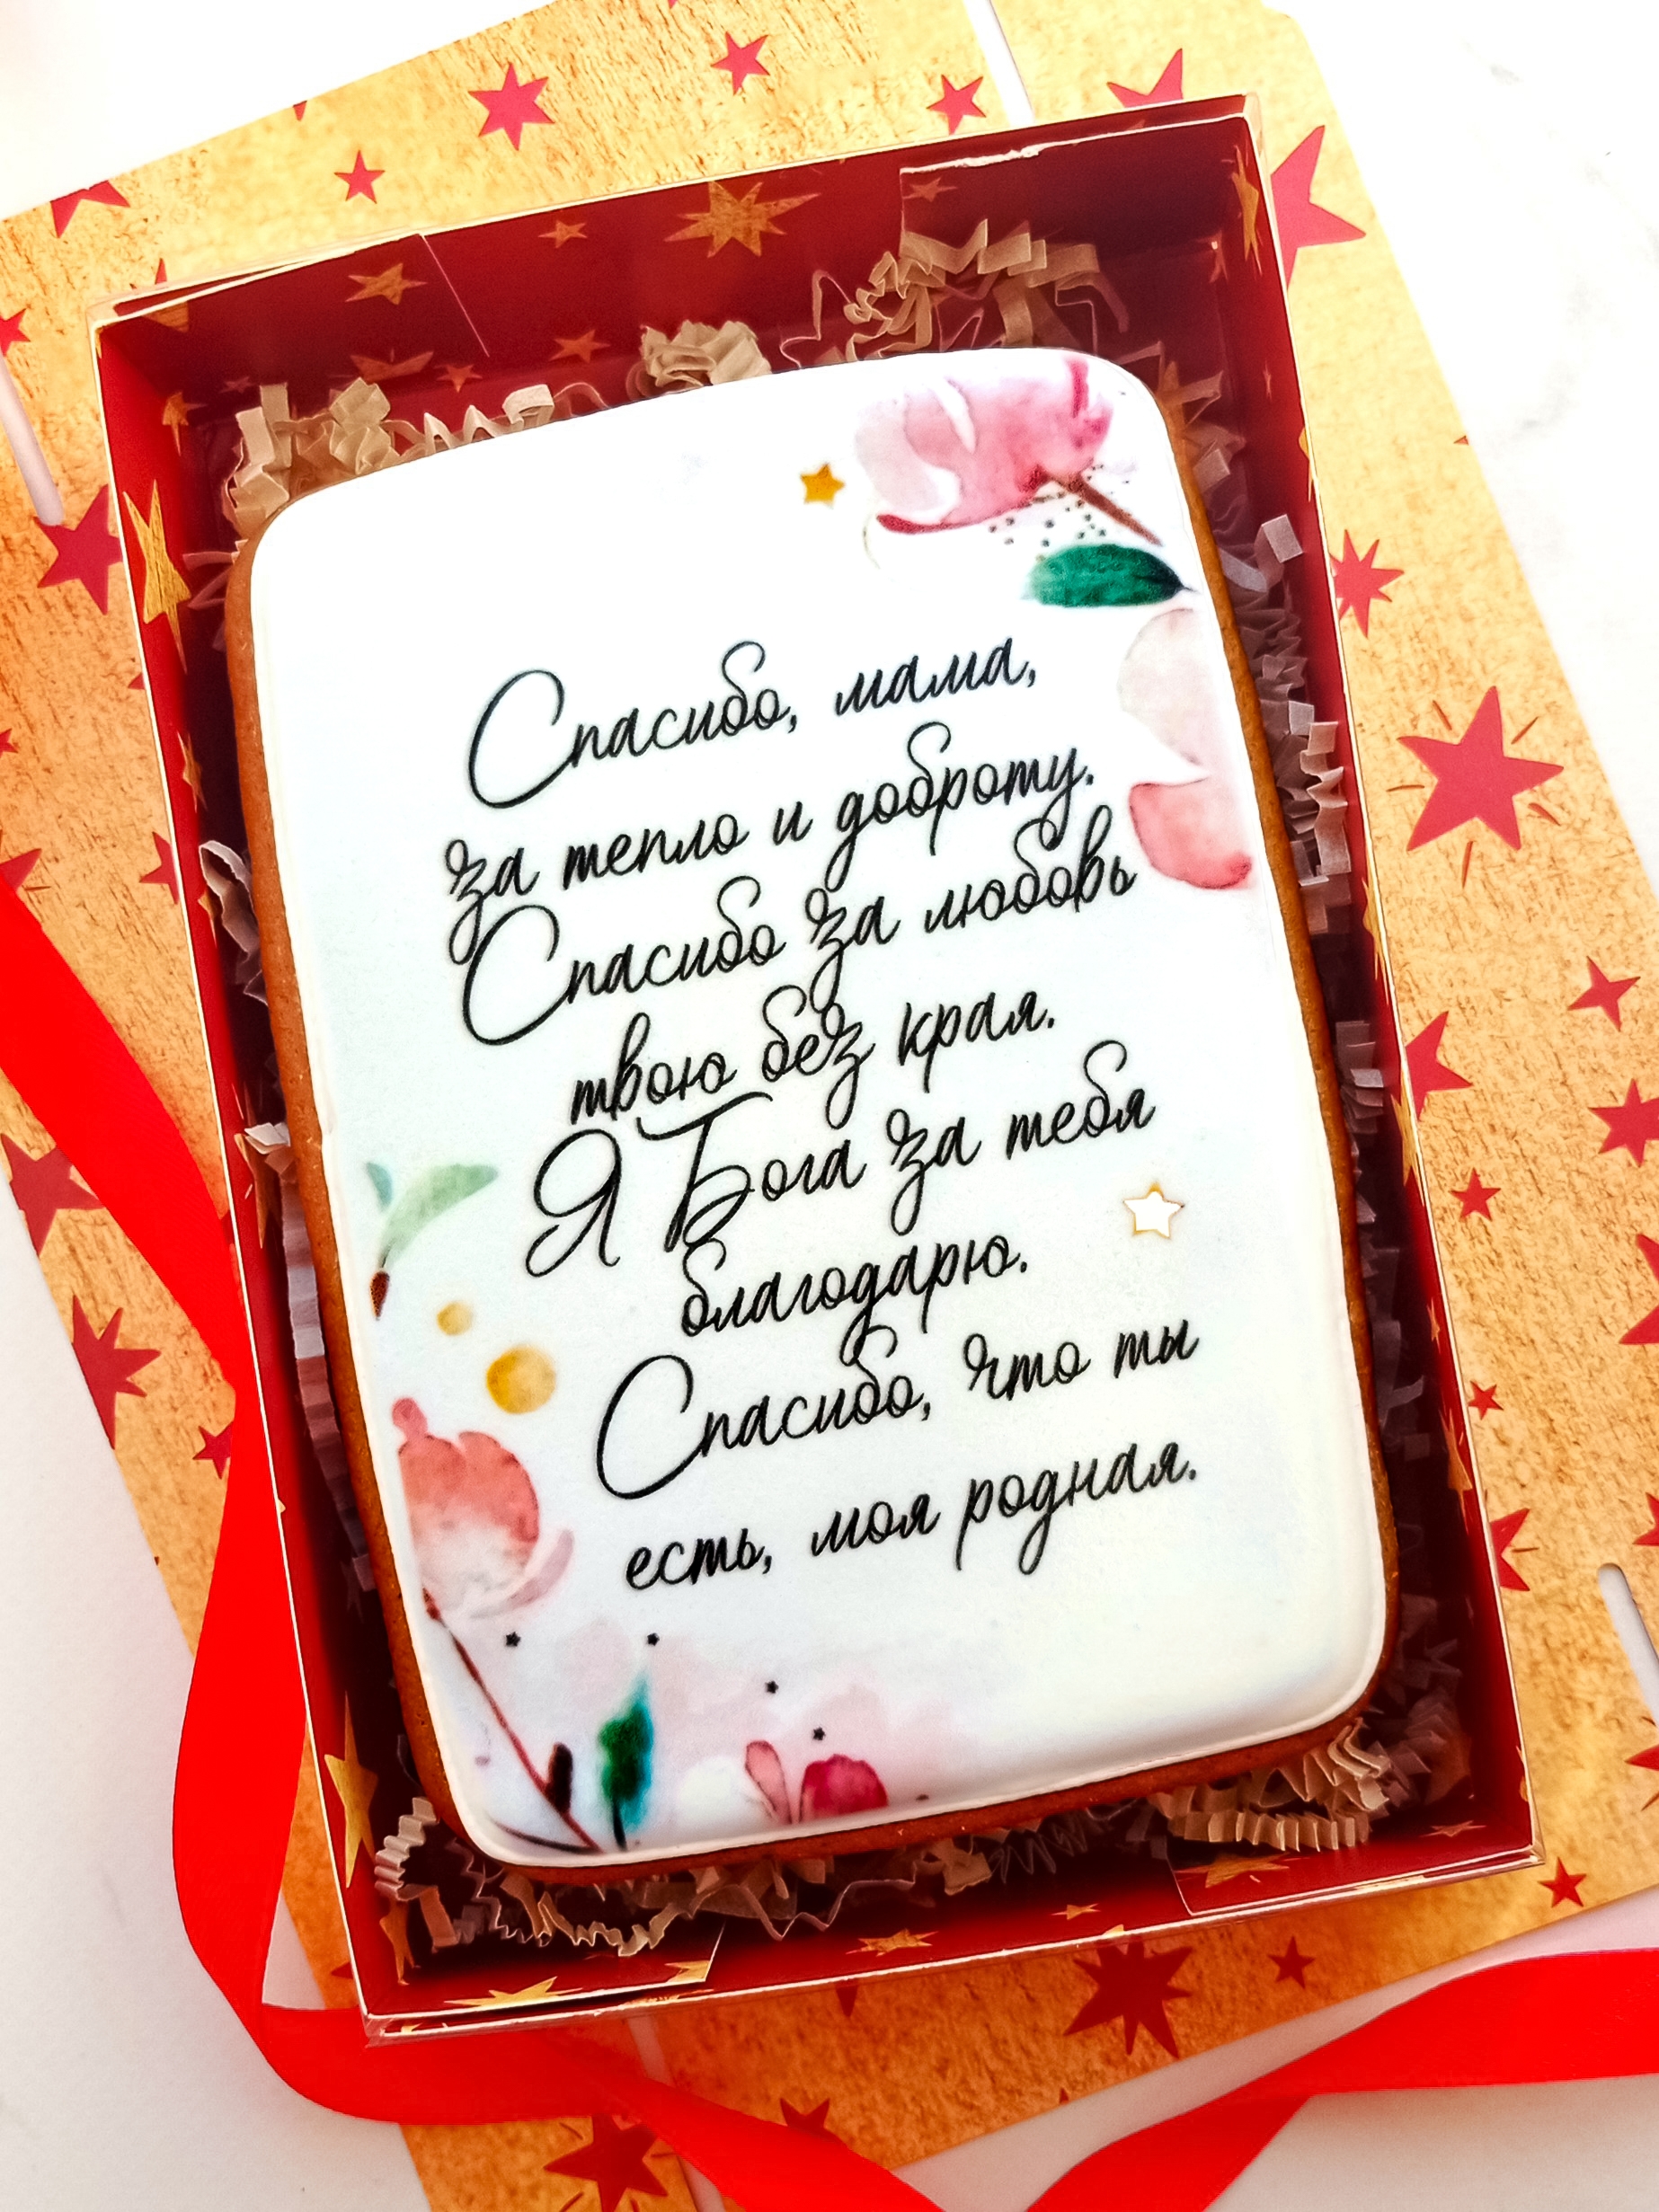 Спасибо, мама,
за тепло и доброту.
Спасибо за любовь
твою без края.
Я Бога за тебя
благодарю.
Спасибо, что ты
есть, моя родная.